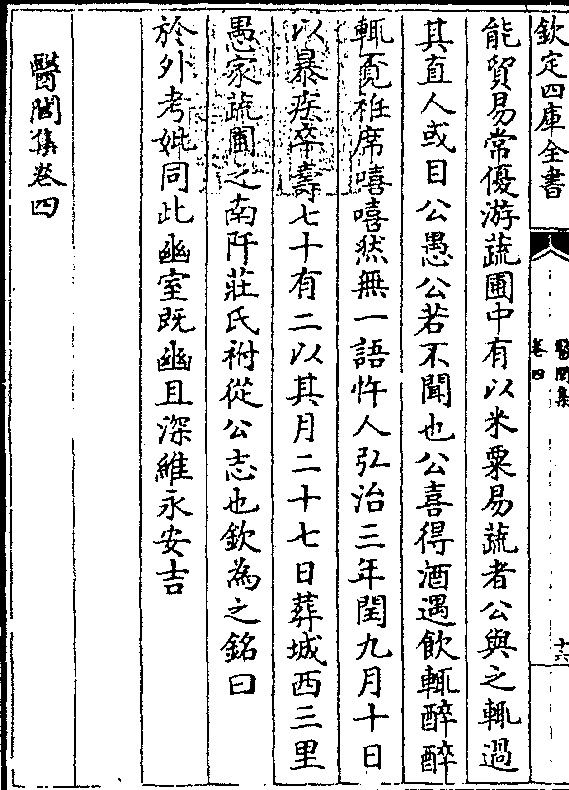 欽定四庫全書
醫閭集
卷四
十六
能貿易常優游蔬圃中有以米粟易蔬者公與之輒過
其直人或目公愚公若不聞也公喜得酒遇飲輒醉醉
輒覔袵席嘻嘻然無一語忤人弘治三年閏九月十日
以暴疾卒壽七十有二以其月二十七日葬城西三里
愚家蔬圃之南阡莊氏祔從公志也欽為之銘曰
於外考妣同此幽室既幽且深維永安吉
醫閭集卷四